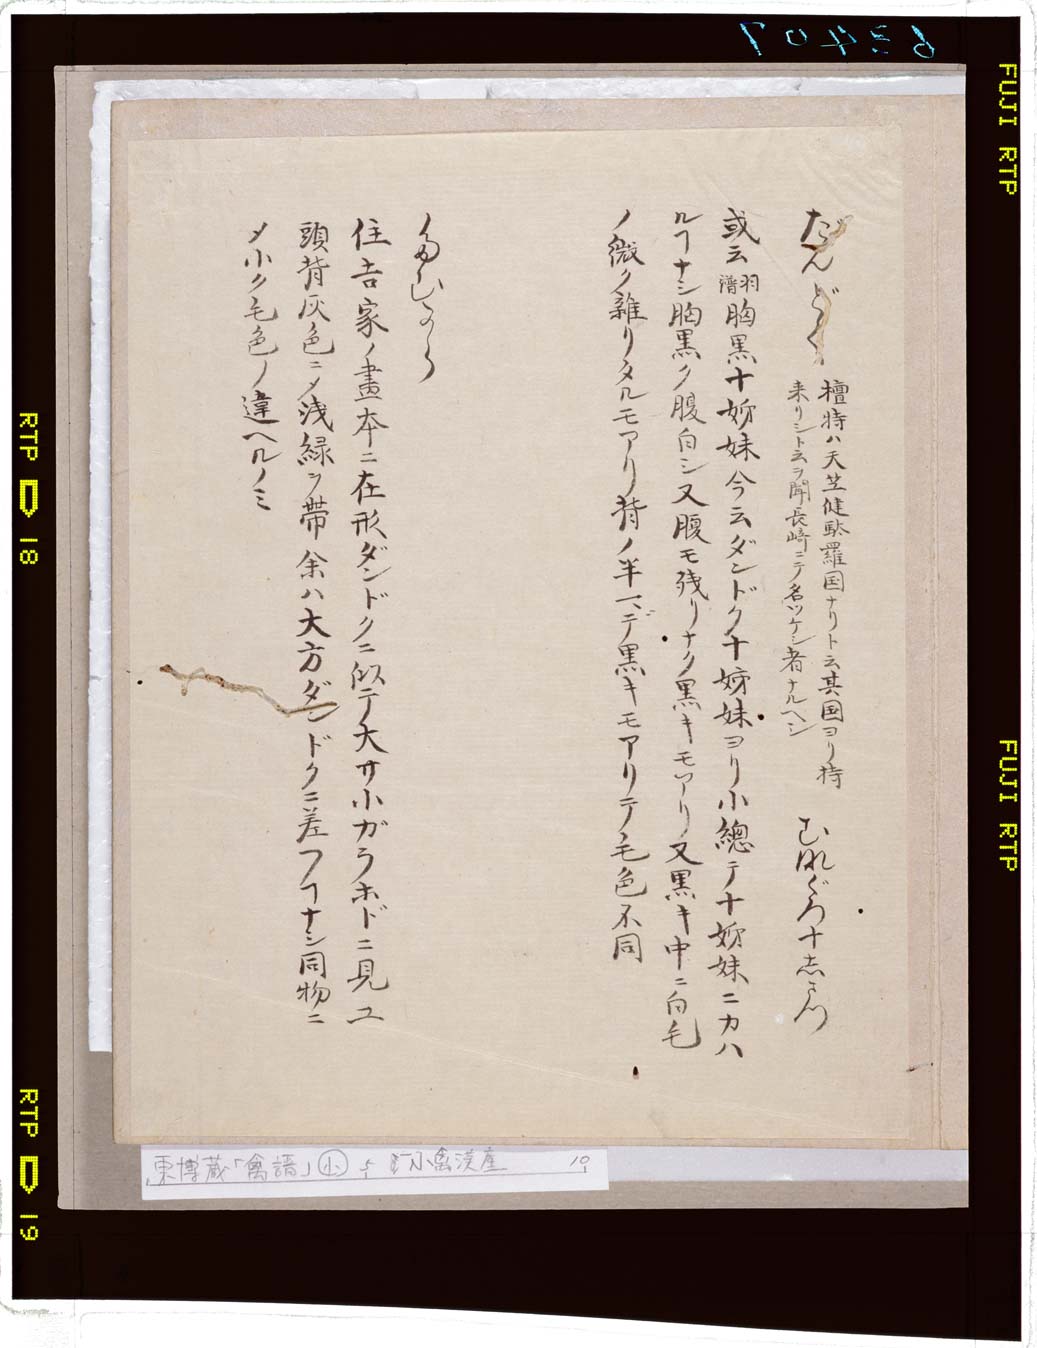 だんどく
檀特ハ天竺健駄羅国ナリト云其国ヨリ持
来リシト云ヲ聞長崎ニテ名ツケシ者ナルヘシ
むねぐろ十志まつ
或云羽譜胸黒十姉妹今云ダンドク十姉妹ヨリ小總テ十姉妹ニカハ
ルヿナシ胸黒ク腹白シ又腹モ残リナク黒キモアリ又黒キ中ニ白毛
ノ微ク雑リタルモアリ背ノ半マデ黒キモアリテ毛色不同
住吉家ノ畫本ニ在形ダンドクニ似テ大サ小ガラホドニ見ユ
頭背灰色ニメ浅緑ヲ帯余ハ大方ダンドクニ差フヿナシ同物ニ
メ小ク毛色ノ違ヘルノミ
東博蔵「禽譜」小 5 小禽漢産 10
63407
FUJI RTP
FUJI RTP
RTP 18
RTP 19